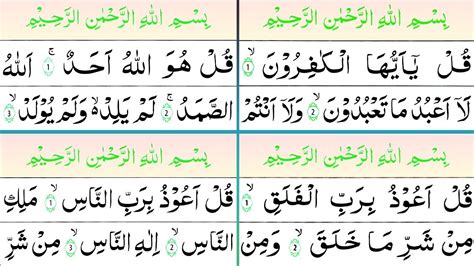 بِسْمِ اللهِ الرَّحْمٰنِ الرَّحِيْمِ
قُلْ يٰۤاَيُّهَا الْكٰفِرُوْنَ ۙ 1
لَاۤ اَعْبُدُ مَا تَعْبُدُوْنَ ۙ 2 وَلَاۤ اَنْتُمْ
بِسْمِ اللهِ الرَّحْمٰنِ الرَّحِيْمِ
قُلْ هُوَ اللهُ اَحَدٌ ۚ 1 اَللهُ
الصَّمَدُ ۚ 2 لَمْ يَلِدْ ۙ وَلَمْ يُوْلَدْ ۙ 3
بِسْمِ اللهِ الرَّحْمٰنِ الرَّحِيْمِ
قُلْ اَعُوْذُ بِرَبِّ الْفَلَقِ ۙ 1
مِنْ شَرِّ مَا خَلَقَ ۙ 2 وَمِنْ
بِسْمِ اللهِ الرَّحْمٰنِ الرَّحِيْمِ
قُلْ اَعُوْذُ بِرَبِّ النَّاسِ ۙ 1 مَلِكِ
النَّاسِ ۙ 2 اِلٰهِ النَّاسِ ۙ 3 مِنْ شَرِّ